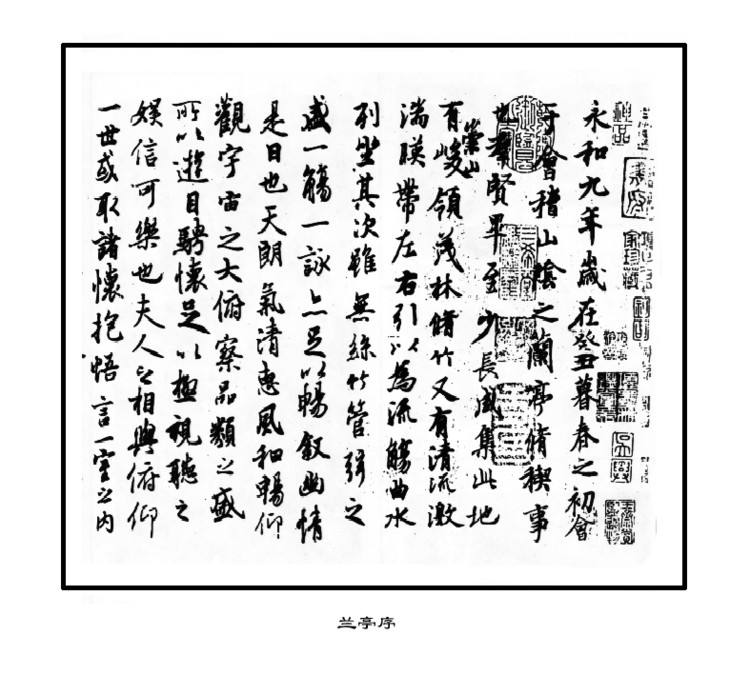 永和九年歲在癸丑暮春之初會
于會稽山陰之蘭亭脩稧事
也羣賢畢至少長咸集此地
有崇山峻領茂林脩竹又有清流激
湍暎帶左右引以為流觴曲水
列坐其次雖無絲竹管弦之
盛一觴一詠亦足以暢敘幽情
是日也天朗氣清惠風和暢仰
觀宇宙之大俯察品類之盛
所以遊目騁懷足以極視聽之
娛信可樂也夫人之相與俯仰
一世或取諸懷抱悟言一室之內
兰亭序